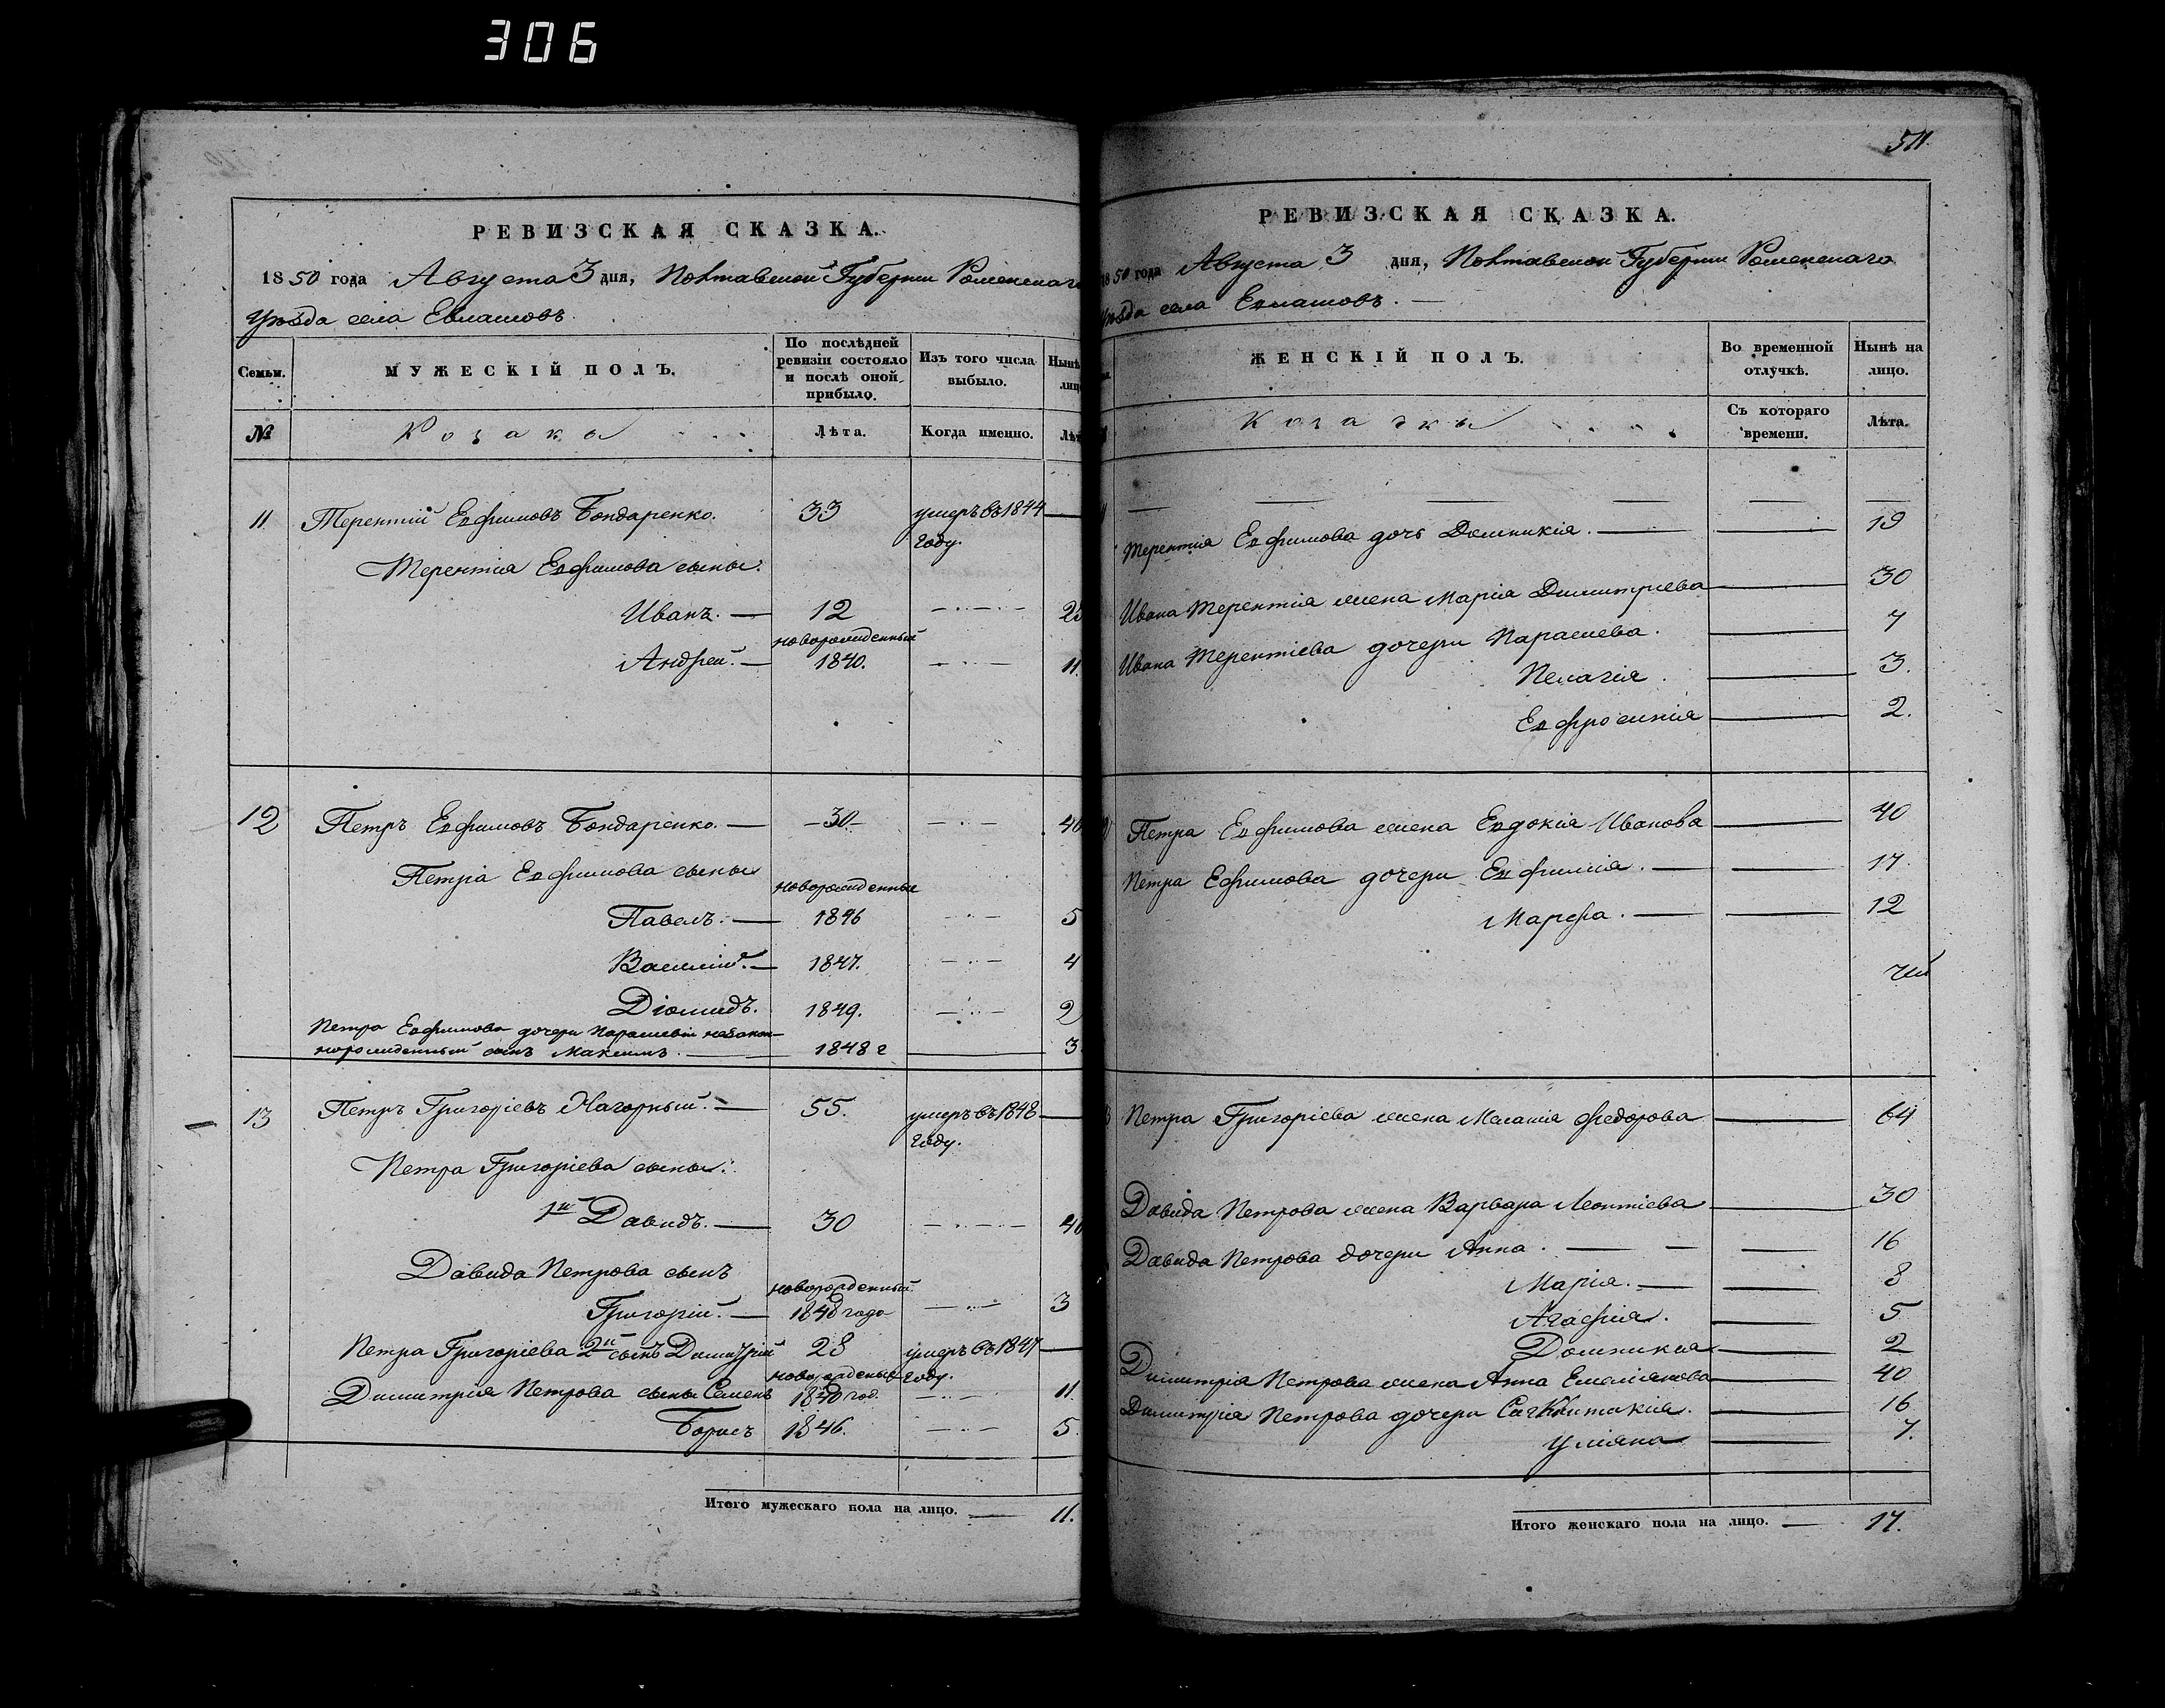 306
РЕВИЗСКАЯ СКАЗКА.
1850 года Августа 3 дня, Полтавской Губернии Роменскаго
Уѣзда села Евлашовъ
Семьи.
МУЖЕСКІЙ ПОЛЪ.
По послѣдней ревизіи состояло и послѣ оной прибыло.
Изъ того числа выбыло.
Нынѣ
лиц
№
Козаки
Лѣта.
Когда именно.
Лѣт
11 Терентій Евфимовъ Бондаренко. 33 умеръ въ 1844
году.
Терентія Евфимова сыны:
Иванъ. 12
новорожденный
Андрей. 1840. 11.
12 Петръ Евфимовъ Бондаренко. 30
Петра Евфимова сыны
новорожденные
Павелъ. 1846 5
Василій. 1847. 4
Діомидъ. 1849. 2
Петра Евфимова дочери Парасковіи незакон-
норожденный сынъ Максимъ. 1848 г 3.
13 Петръ Григорьевъ Нагорный. 55. умеръ въ 1848
году.
Петра Григоріева сыны:
1й Давидъ. 30
Давида Петрова сынъ
новорожденный
Григорій. 1848 года 3
Петра Григоріева 2й сынъ Димитрій 28 умеръ въ 1847
новорожденные году.
Димитрія Петрова сыны Семенъ 1840 год. 11.
Борисъ 1846. 5
Итого мужескаго пола на лицо. 11.
511.
РЕВИЗСКАЯ СКАЗКА.
1850 года Августа 3 дня, Полтавской Губернии Роменскаго
Уѣзда села Евлашовъ.
ЖЕНСКІЙ ПОЛЪ.
Во временной отлучкѣ.
Нынѣ на лицо.
Козачки
Съ котораго времени.
Лѣта.
Терентія Евфимова дочь Домникія. 19
Ивана Терентія жена Марія Димитріева 30
Ивана Терентіева дочери Параскева. 7
Пелагія. 3.
Евфросинія 2.
Петра Евфимова жена Евдокія Иванова 40
Петра Ефимова дочери Евфимія. 17.
Марфа. 12
Петра Григоріева жена Меланія Федорова 64
Давида Петрова жена Варвара Леонтіева 30
Давида Петрова дочери Анна. 16
Марія. 8
Агафія. 5
Домникія 2
Димитрія Петрова жена Анна Емеліянова 40
Димитрія Петрова дочери 16
Уліяна 7.
Итого женскаго пола на лицо. 17.